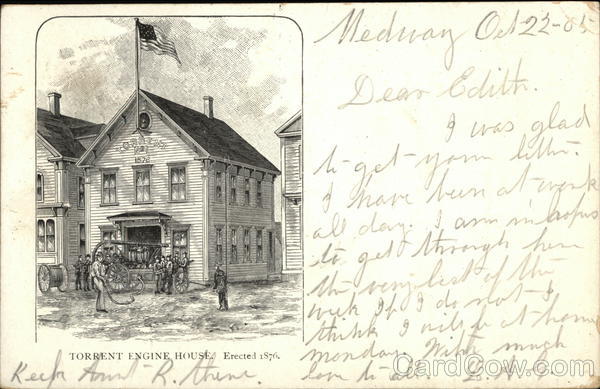 Medway Oct 22-05
Dear Edith.
I was glad
to get your letter.
I have been at work
all day. I am in hopes
to get through here
the very last of the
week If I do not I
think I will be at home
monday. With much
love to all
TORRENT ENGINE HOUSE. Erected 1876.
Keep Aunt R. there.
1876
CardCow.com